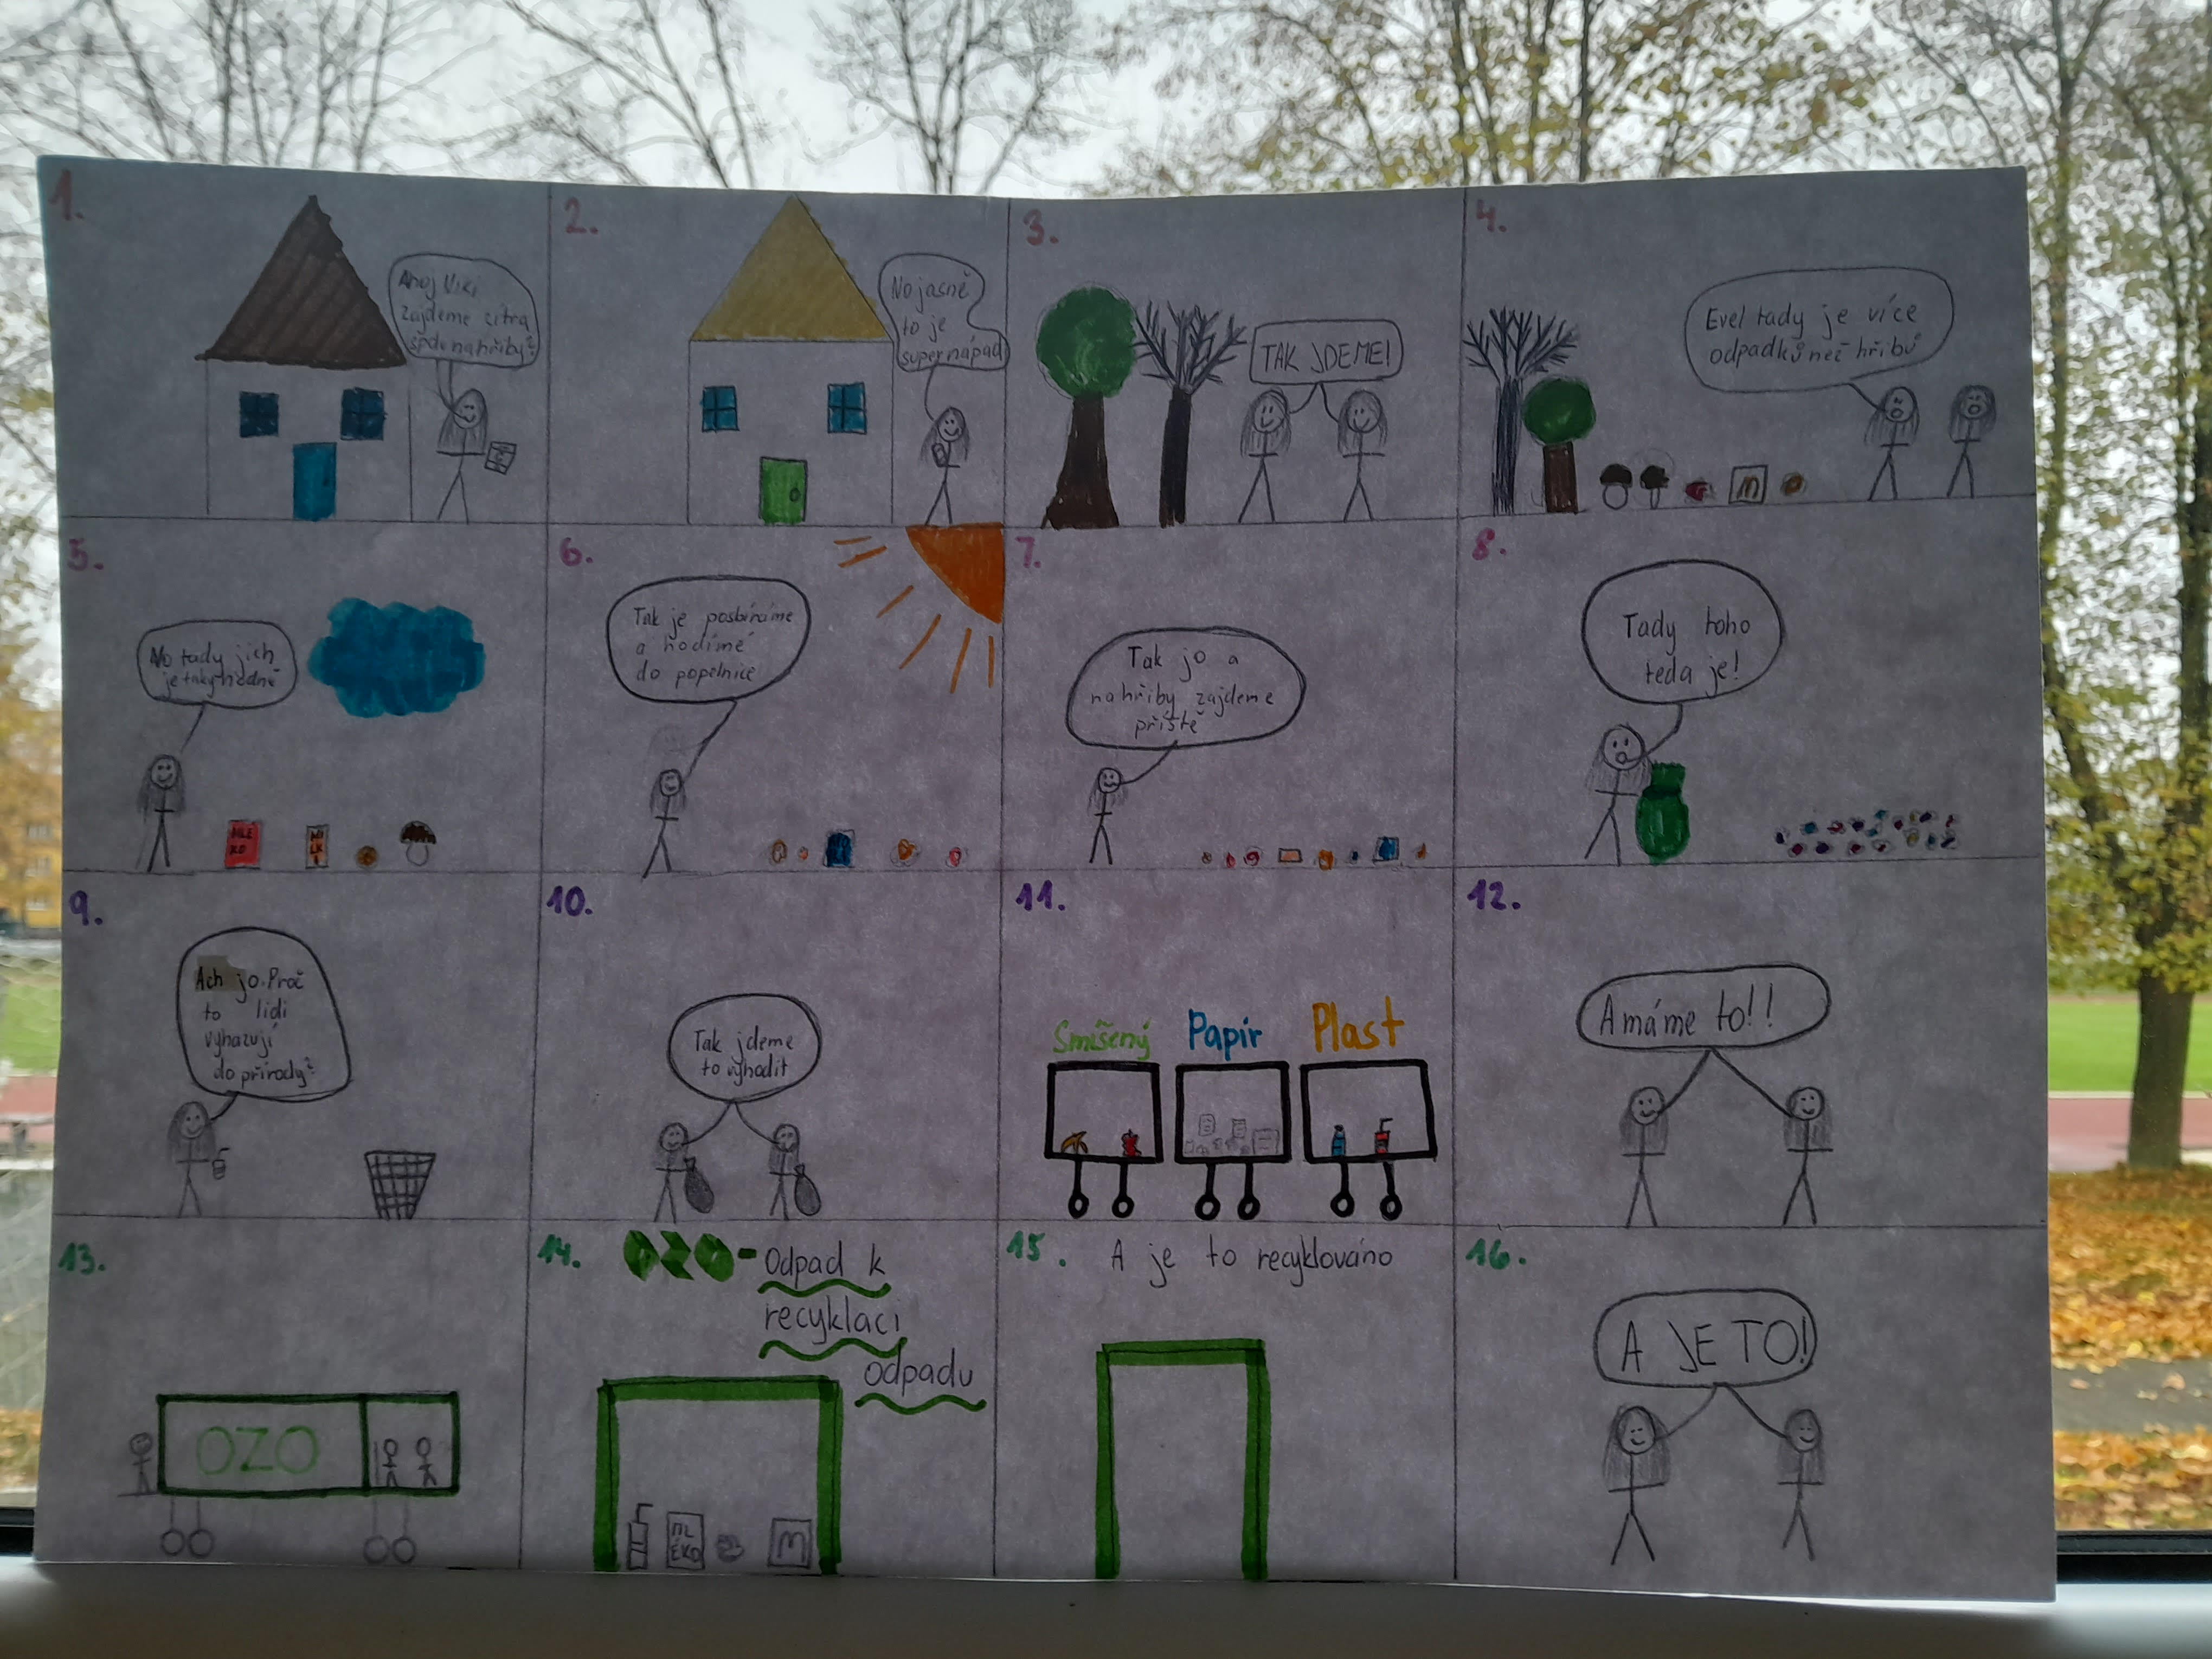 1.
Ahoj Viki
zajdeme zítra
spolu na hřiby?
2.
No jasně
to je
super nápad
3.
TAK JDEME!
4.
Evel tady je více
odpadků než hřibů
M
5.
No tady jich
je taky hodně
MLE
KO
MI
LK
A
6.
Tak je posbíráme
a hodíme
do popelnice
7.
Tak jo a
na hřiby zajdeme
příště
8.
Tady toho
teda je!
9.
Ach jo. Proč
to lidi
vyhazují
do přírody?
10.
Tak jdeme
to vyhodit
11.
Smíšený Papír Plast
12.
A máme to!!
13.
OZO
14.
OZO - Odpad k
recyklaci
odpadu
ML
ÉKO
M
15. A je to recyklováno
16.
A JE TO!